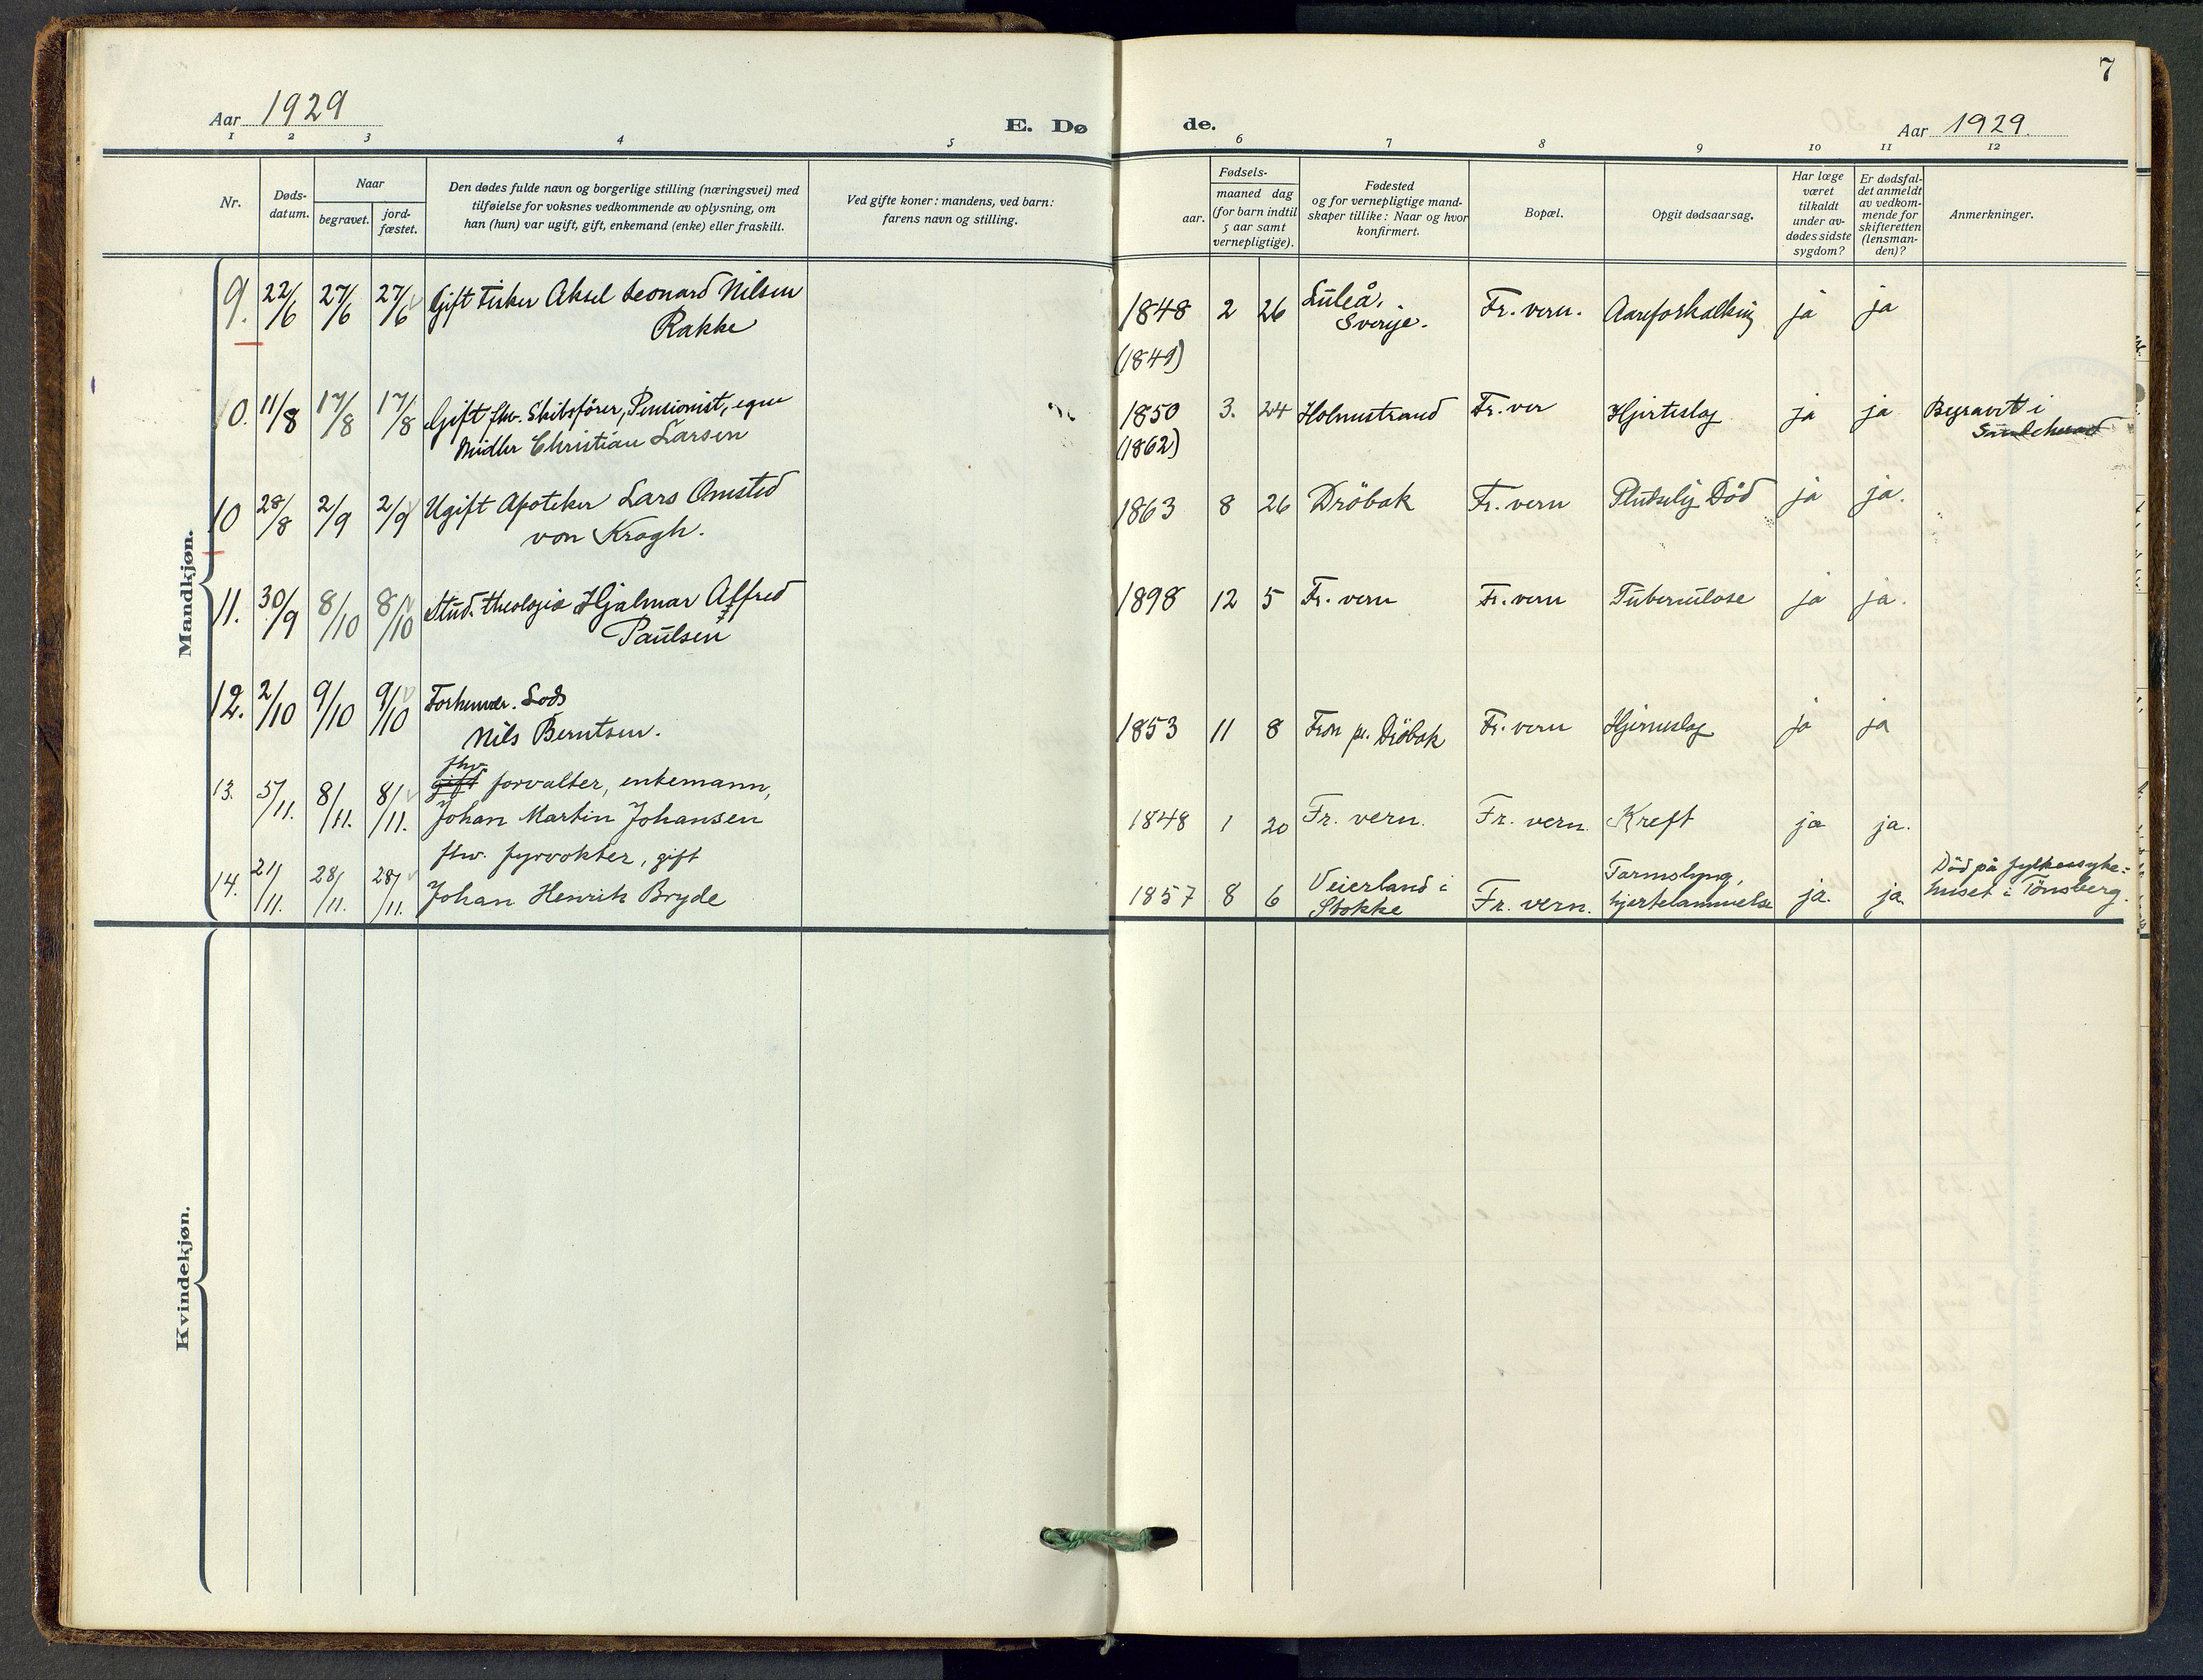 7
Aar 1929
E. Døde.
Aar 1929.
1 2 3 4 5 6 7 8 9 10 11 12
Nr.
Døds-
datum.
Naar
begravet.
jord-
fæstet.
Den dødes fulde navn og borgerlige stilling (næringsvei) med
tilføielse for voksnes vedkommende av oplysning, om
han (hun) var ugift, gift, enkemand (enke) eller fraskilt.
Ved gifte koner: mandens, ved barn:
farens navn og stilling.
Fødsels-
aar.
maaned dag
(for barn indtil
5 aar samt
vernepligtige).
Fødested
og for vernepligtige mand-
skaper tillike: Naar og hvor
konfirmert.
Bopæl.
Opgit dødsaarsag.
Har læge
været
tilkaldt
under av-
dødes sidste
sygdom?
Er dødsfal-
det anmeldt
av vedkom-
mende for
skifteretten
(lensman-
den)?
Anmerkninger.
Mandkjøn.
9. 22/6 27/6 27/6 Gift Fisker Aksel Leonard Nilsen
Rakke
1848 2 26 Luleå, Sverije. Fr. vern. Aareforkalking ja ja
(1849)
10. 11/8 17/8 17/8 Gift fhv. Skibsfører, Pensionist, egne
Midler Christian Larsen
1850 3. 24 Holmestrand Fr. ver Hjerteslag ja ja Begravet i
Sandeherred
(1862)
10 28/8 2/9 2/9 Ugift Apoteker Lars Omsted
von Krogh.
1863 8 26 Drøbak Fr. vern Pludselig Død ja ja.
11. 30/9 8/10 8/10 Stud. theologia Hjalmar Alfred
Paulsen
1898 12 5 Fr. vern Fr. vern Tuberculose ja ja.
12. 2/10 9/10 9/10 Forhenvær. Lods
Nils Berntsen.
1853 11 8 Fron pr. Drøbak Fr. vern Hjerneslag ja ja
fhv.
13. 5/11. 8/11. 8/11. gift forvalter, enkemann,
Johan Martin Johansen
1848 1 20 Fr. vern. Fr. vern. Kreft ja ja.
fhv. fyrvokter, gift
14. 21/11. 28/11. 28/11. Johan Henrik Bryde
1857 8 6 Veierland i
Stokke
Fr. vern. Tarmslyng,
hjertelammelse ja. ja. Død på fylkessyke=
huset i Tønsberg.
Kvindekjøn.